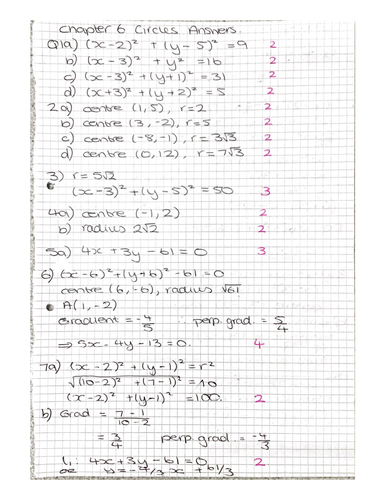 Chapter 6 Circles Answers.
Q1a) (x-2)² + (y-5)² = 9 2
b) (x-3)² + y² = 16 2
c) (x-3)² + (y+1)² = 31 2
d) (x+3)² + (y+2)² = 5 2
2a) centre (1,5), r=2 2
b) centre (3,-2), r=5 2
c) centre (-8,-1), r=3√3 2
d) centre (0,12), r=7√3 2
3) r=5√2
(x-3)² + (y-5)² = 50 3
4a) centre (-1,2) 2
b) radius 2√2 2
5a) 4x + 3y - 61 = 0 3
6) (x-6)² + (y+6)² - 61 = 0
centre (6,-6), radius √61
A(1,-2)
Gradient = -4/5 ∴ perp. grad. = 5/4
⇒ 5x - 4y - 13 = 0. 4
7a) (x-2)² + (y-1)² = r²
√(10-2)² + (7-1)² = 10
(x-2)² + (y-1)² = 100. 2
b) Grad = 7-1/10-2
= 3/4 perp. grad. = -4/3
l₁: 4x + 3y - 61 = 0 2
oe y = -4/3 x + 61/3